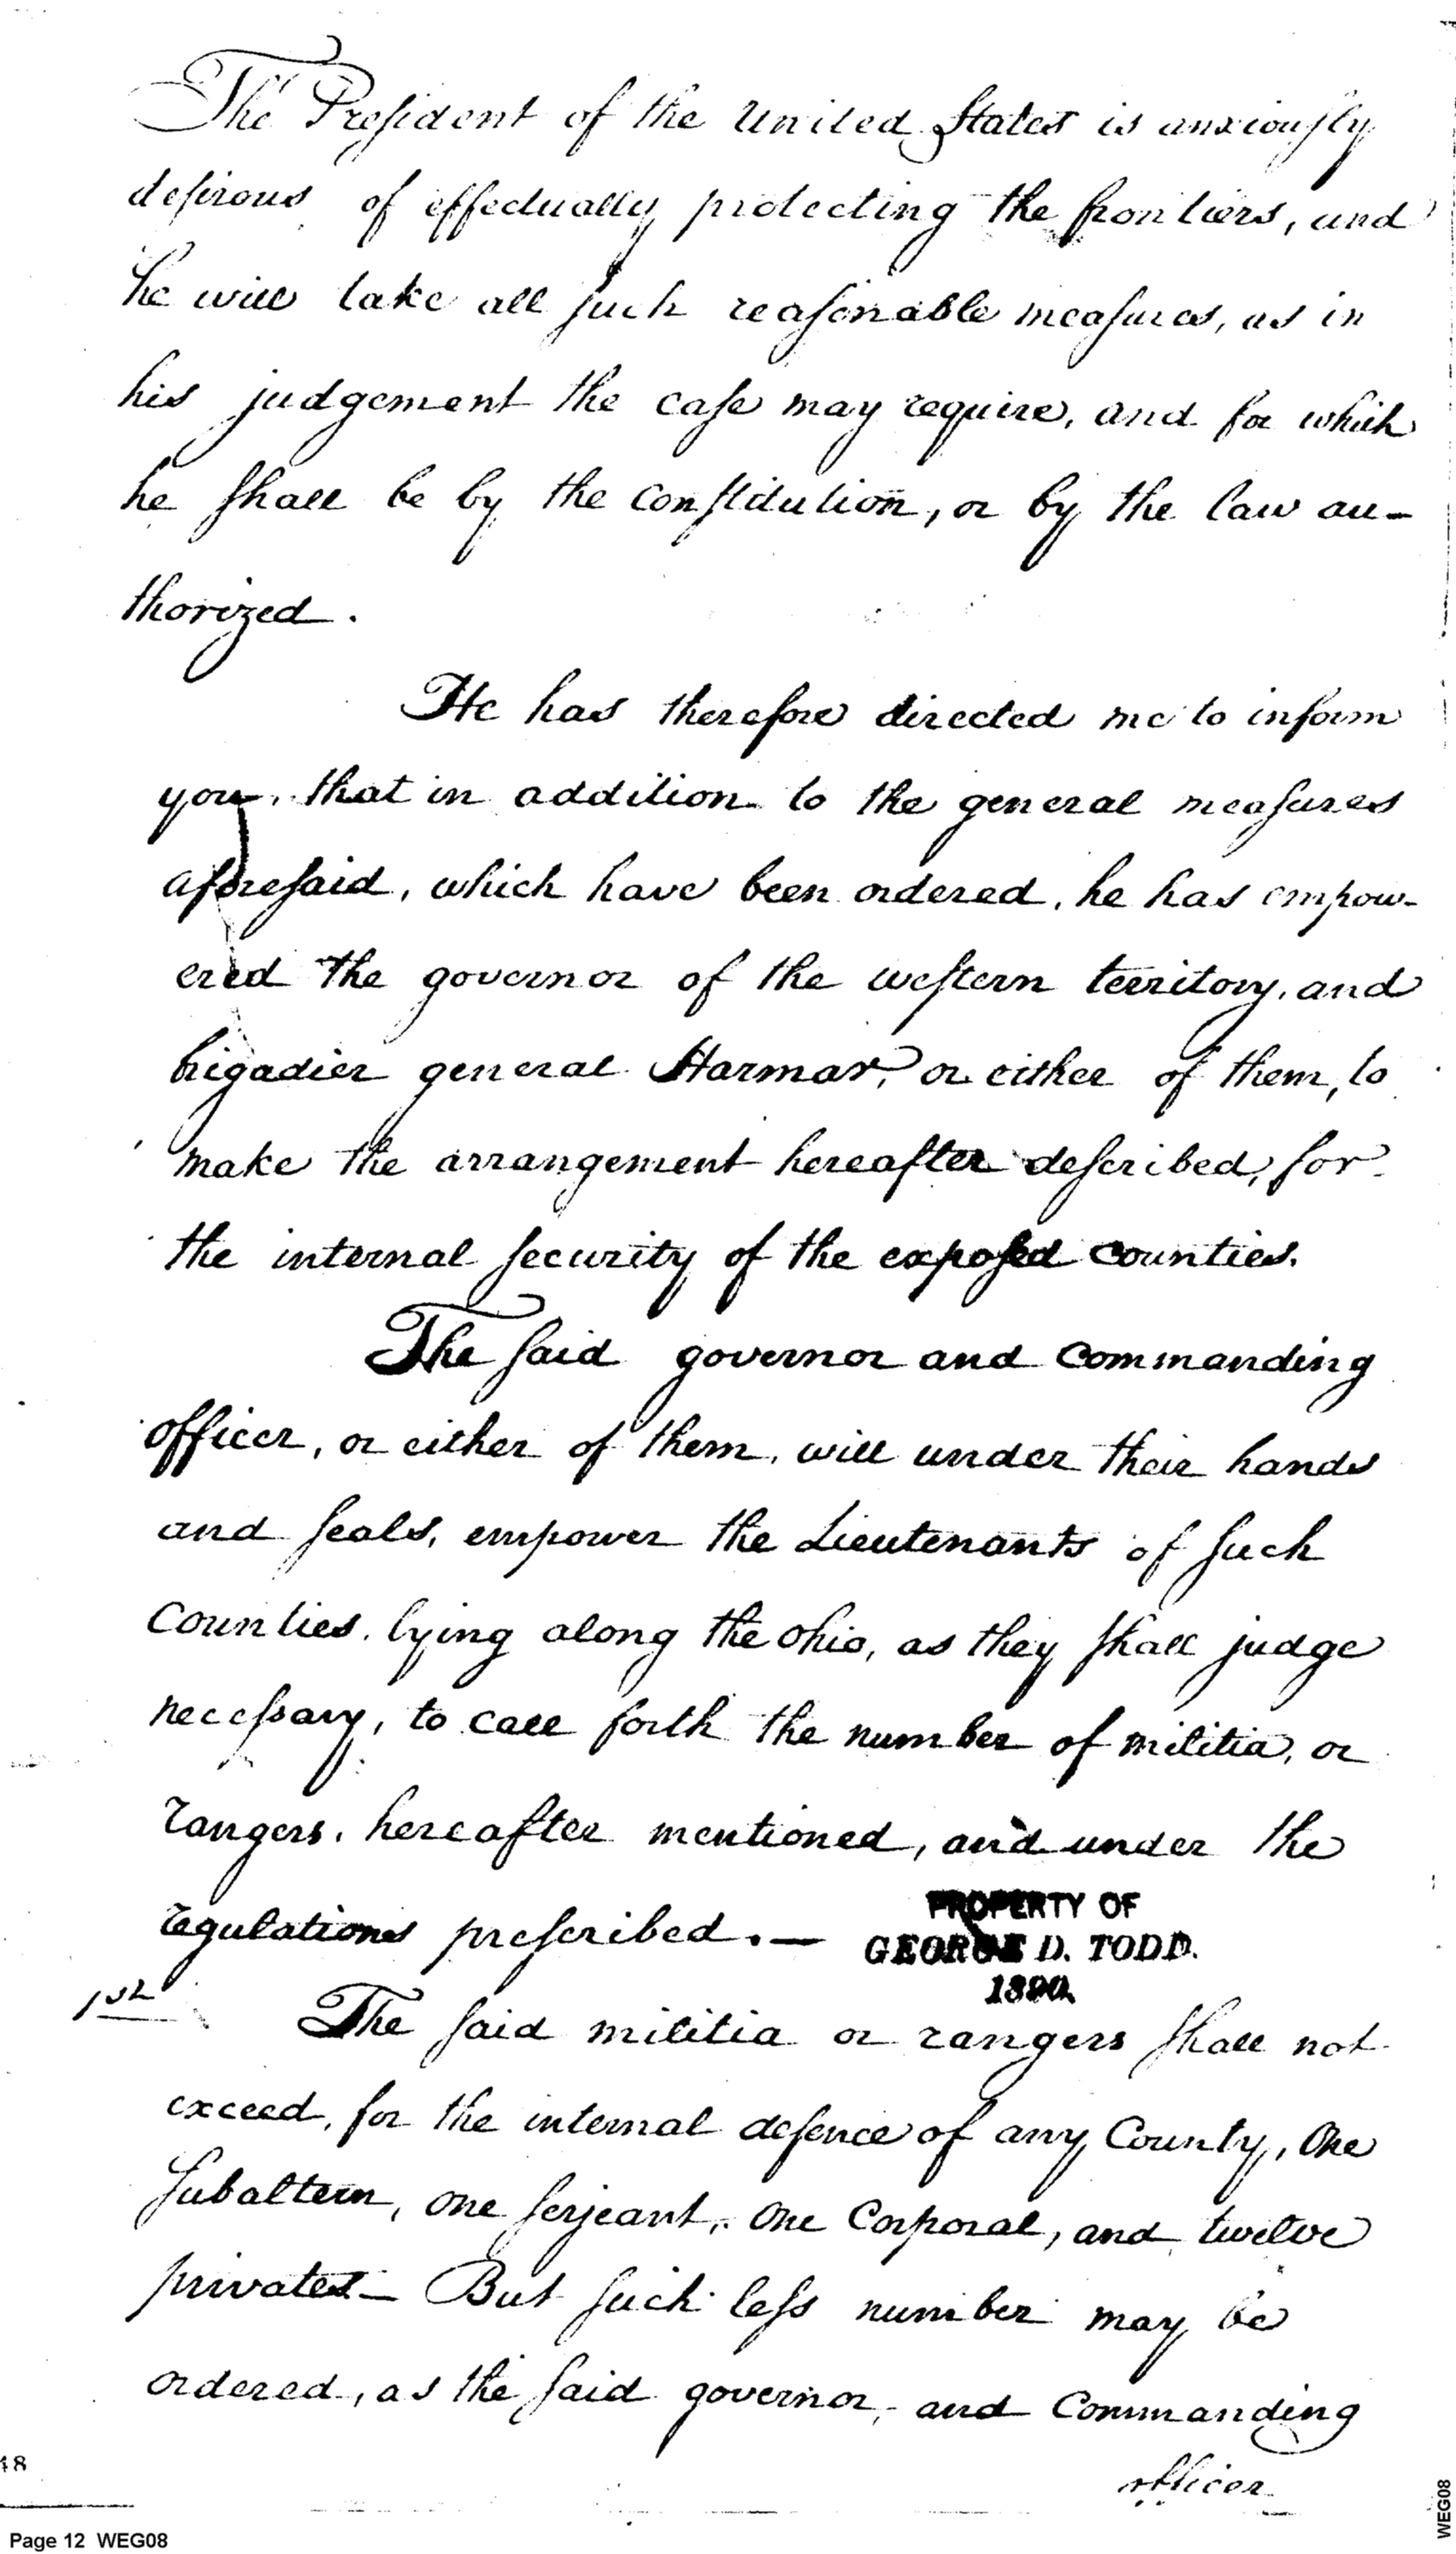 The President of the United States is anxiously
desirous of effectually protecting the frontiers, and
he will take all such reasonable measures, as in
his judgement the case may require, and for which
he shall be by the constitution, or by the law au-
thorized.
He has therefore directed me to inform
you, that in addition to the general measures
aforesaid, which have been ordered, he has empow-
ered the governor of the western territory, and
brigadier general Harmar, or either of them, to
make the arrangement hereafter described, for
the internal security of the exposed counties.
The said governor and commanding
officer, or either of them, will under their hands
and seals, empower the Lieutenants of such
Counties, lying along the Ohio, as they shall judge
necessary, to call forth the number of militia, or
rangers, hereafter mentioned, and under the
regulations prescribed. —
PROPERTY OF
GEORGE D. TODD.
1890.
1st The said militia or rangers shall not
exceed, for the internal defence of any County, One
Subaltern, one serjeant, One Corporal, and twelve
privates — But such less number may be
ordered, as the said governor, and Commanding
officer
18
Page 12 WEG08
WEG08